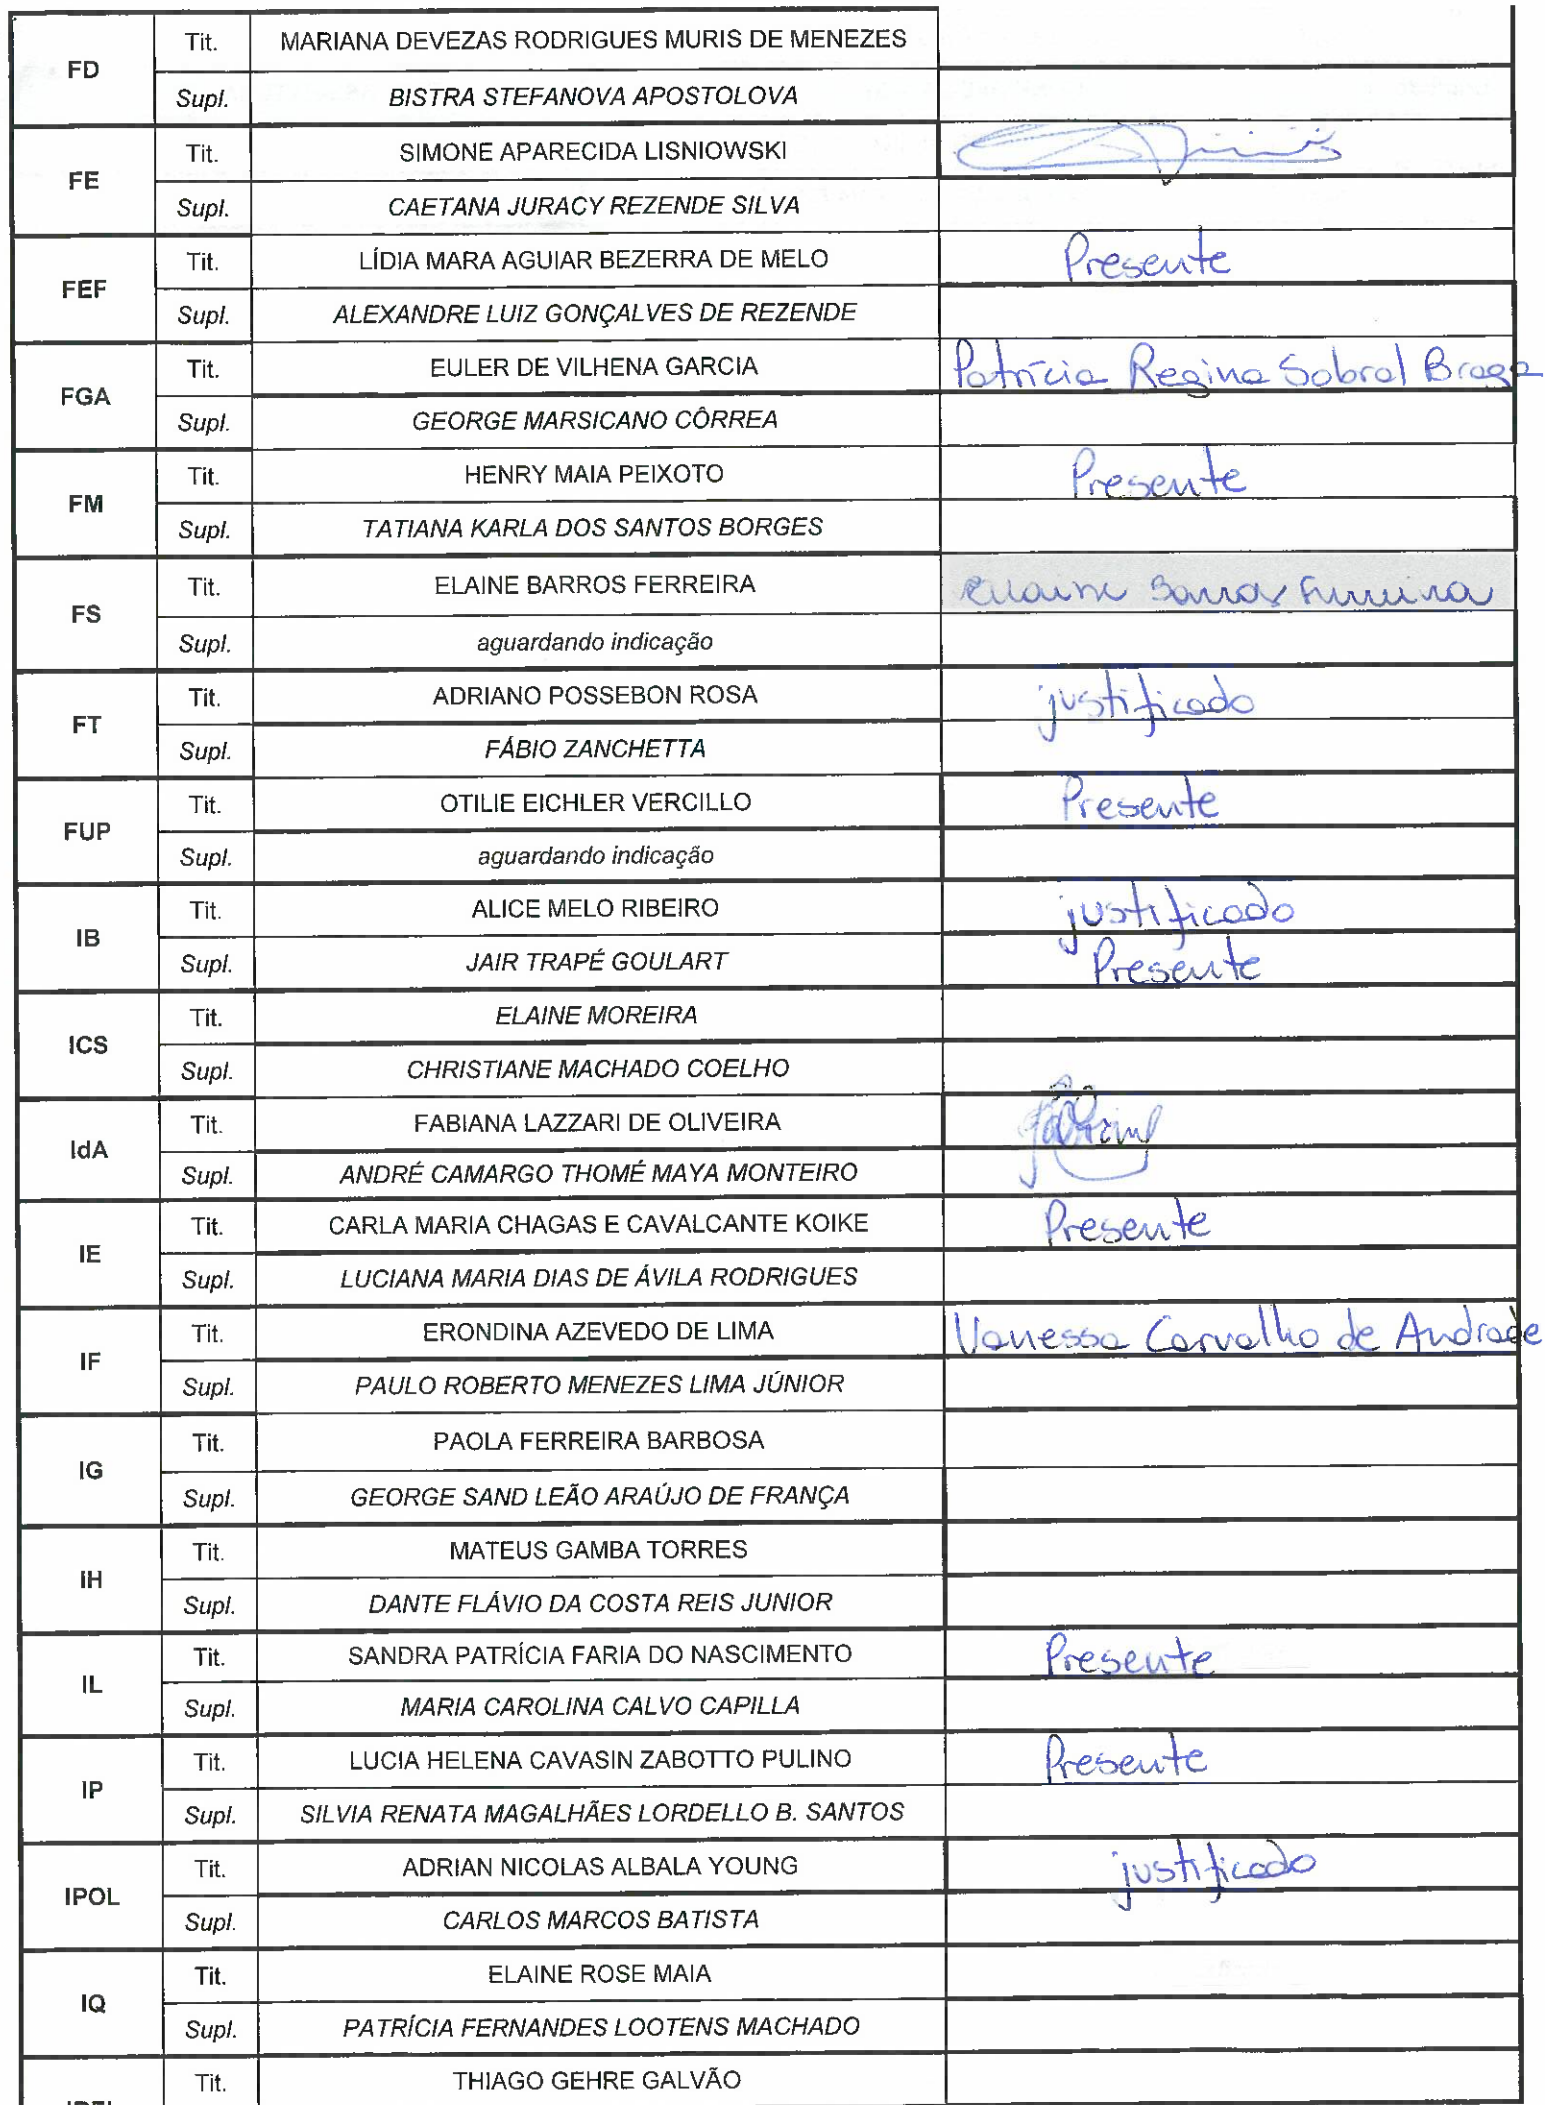 FD Tit. MARIANA DEVEZAS RODRIGUES MURIS DE MENEZES
Supl. BISTRA STEFANOVA APOSTOLOVA
FE Tit. SIMONE APARECIDA LISNIOWSKI
Supl. CAETANA JURACY REZENDE SILVA
FEF Tit. LÍDIA MARA AGUIAR BEZERRA DE MELO Presente
Supl. ALEXANDRE LUIZ GONÇALVES DE REZENDE
FGA Tit. EULER DE VILHENA GARCIA Patrícia Regina Sobral Braga
Supl. GEORGE MARSICANO CÔRREA
FM Tit. HENRY MAIA PEIXOTO Presente
Supl. TATIANA KARLA DOS SANTOS BORGES
FS Tit. ELAINE BARROS FERREIRA Elaine Barros Ferreira
Supl. aguardando indicação
FT Tit. ADRIANO POSSEBON ROSA justificado
Supl. FÁBIO ZANCHETTA
FUP Tit. OTILIE EICHLER VERCILLO Presente
Supl. aguardando indicação
IB Tit. ALICE MELO RIBEIRO justificado
Supl. JAIR TRAPÉ GOULART Presente
ICS Tit. ELAINE MOREIRA
Supl. CHRISTIANE MACHADO COELHO
IdA Tit. FABIANA LAZZARI DE OLIVEIRA
Supl. ANDRÉ CAMARGO THOMÉ MAYA MONTEIRO
IE Tit. CARLA MARIA CHAGAS E CAVALCANTE KOIKE Presente
Supl. LUCIANA MARIA DIAS DE ÁVILA RODRIGUES
IF Tit. ERONDINA AZEVEDO DE LIMA Vanessa Carvalho de Andrade
Supl. PAULO ROBERTO MENEZES LIMA JÚNIOR
IG Tit. PAOLA FERREIRA BARBOSA
Supl. GEORGE SAND LEÃO ARAÚJO DE FRANÇA
IH Tit. MATEUS GAMBA TORRES
Supl. DANTE FLÁVIO DA COSTA REIS JUNIOR
IL Tit. SANDRA PATRÍCIA FARIA DO NASCIMENTO Presente
Supl. MARIA CAROLINA CALVO CAPILLA
IP Tit. LUCIA HELENA CAVASIN ZABOTTO PULINO Presente
Supl. SILVIA RENATA MAGALHÃES LORDELLO B. SANTOS
IPOL Tit. ADRIAN NICOLAS ALBALA YOUNG justificado
Supl. CARLOS MARCOS BATISTA
IQ Tit. ELAINE ROSE MAIA
Supl. PATRÍCIA FERNANDES LOOTENS MACHADO
Tit. THIAGO GEHRE GALVÃO